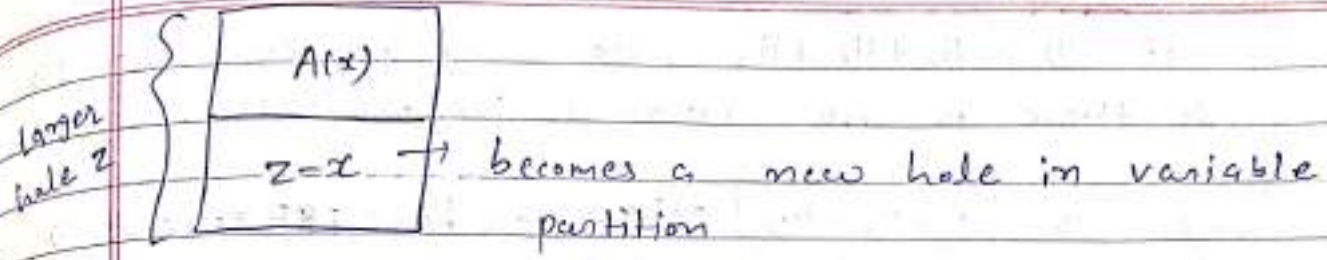 A(x)
larger
hole z
z-x → becomes a new hole in variable
partition